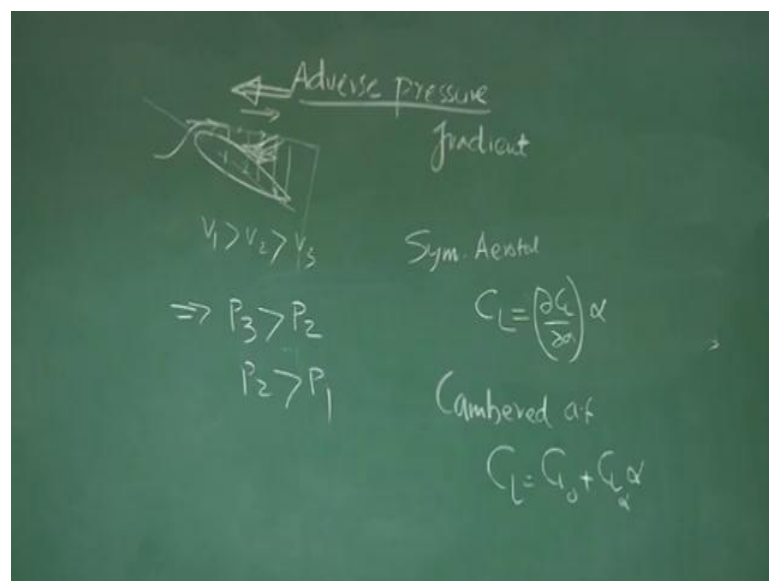 Adverse pressure
gradient
V₁ > V₂ > V₃
⇒ P₃ > P₂
P₂ > P₁
Sym. Aerofoil
C_L = (∂C_L/∂α) α
Cambered a.f
C_L = C_L₀ + C_Lα α